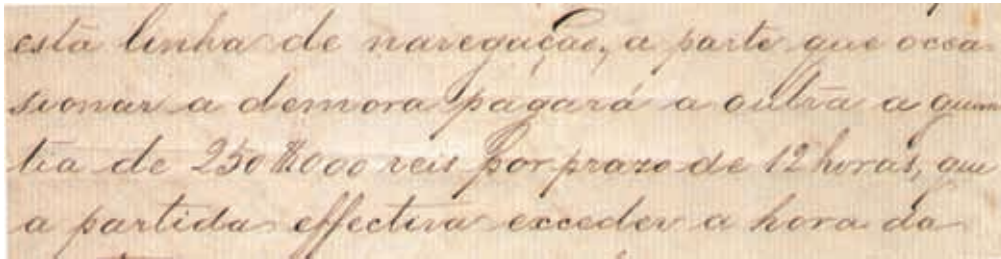 esta linha de navegação, a parte que occa-
sionar a demora pagará a outra a quan-
tia de 250$000 reis por prazo de 12 horas, que
a partida effectiva exceder a hora da